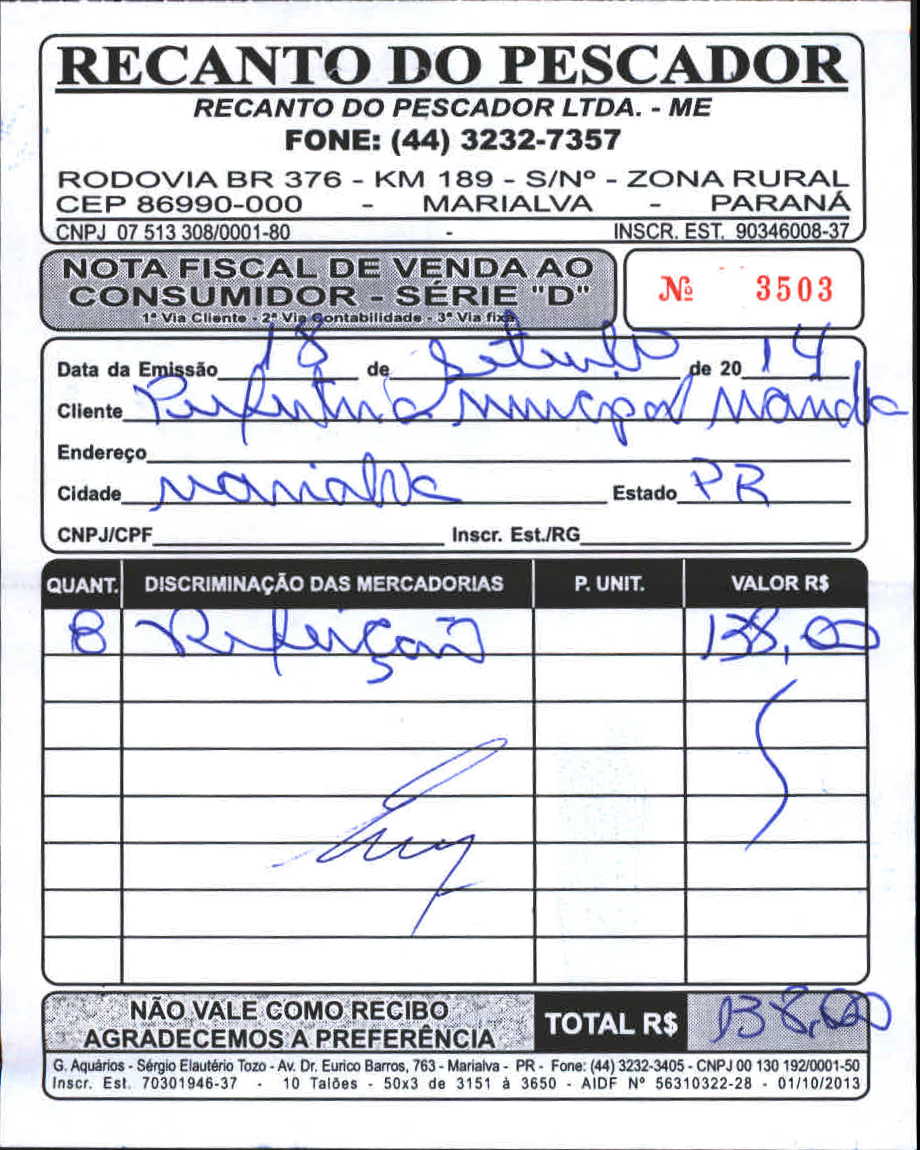 RECANTO DO PESCADOR
RECANTO DO PESCADOR LTDA. - ME
FONE: (44) 3232-7357
RODOVIA BR 376 - KM 189 - S/Nº - ZONA RURAL
CEP 86990-000 - MARIALVA - PARANÁ
CNPJ 07 513 308/0001-80 - INSCR. EST. 90346008-37
NOTA FISCAL DE VENDA AO
CONSUMIDOR - SÉRIE "D"
1ª Via Cliente - 2ª Via Contabilidade - 3ª Via fixa
Nº 3503
Data da Emissão 18 de Setembro de 20 14
Cliente Prefeitura Municipal Marialva
Endereço
Cidade Marialva Estado PR
CNPJ/CPF Inscr. Est./RG
QUANT. DISCRIMINAÇÃO DAS MERCADORIAS P. UNIT. VALOR R$
8 Refeição 138,00
NÃO VALE COMO RECIBO
AGRADECEMOS A PREFERÊNCIA
TOTAL R$ 138,00
G. Aquários - Sérgio Elautério Tozo - Av. Dr. Eurico Barros, 763 - Marialva - PR - Fone: (44) 3232-3405 - CNPJ 00 130 192/0001-50
Inscr. Est. 70301946-37 - 10 Talões - 50x3 de 3151 à 3650 - AIDF Nº 56310322-28 - 01/10/2013